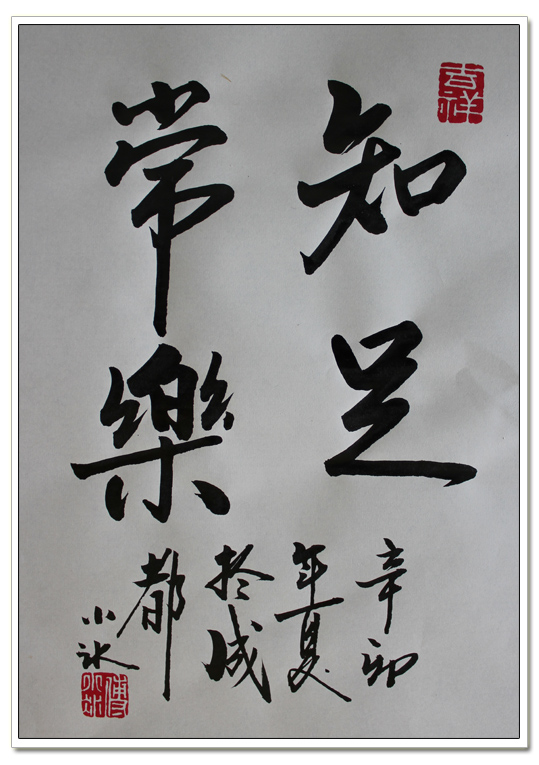 吉祥
知足
常樂
辛卯
年夏
於成
都
小冰